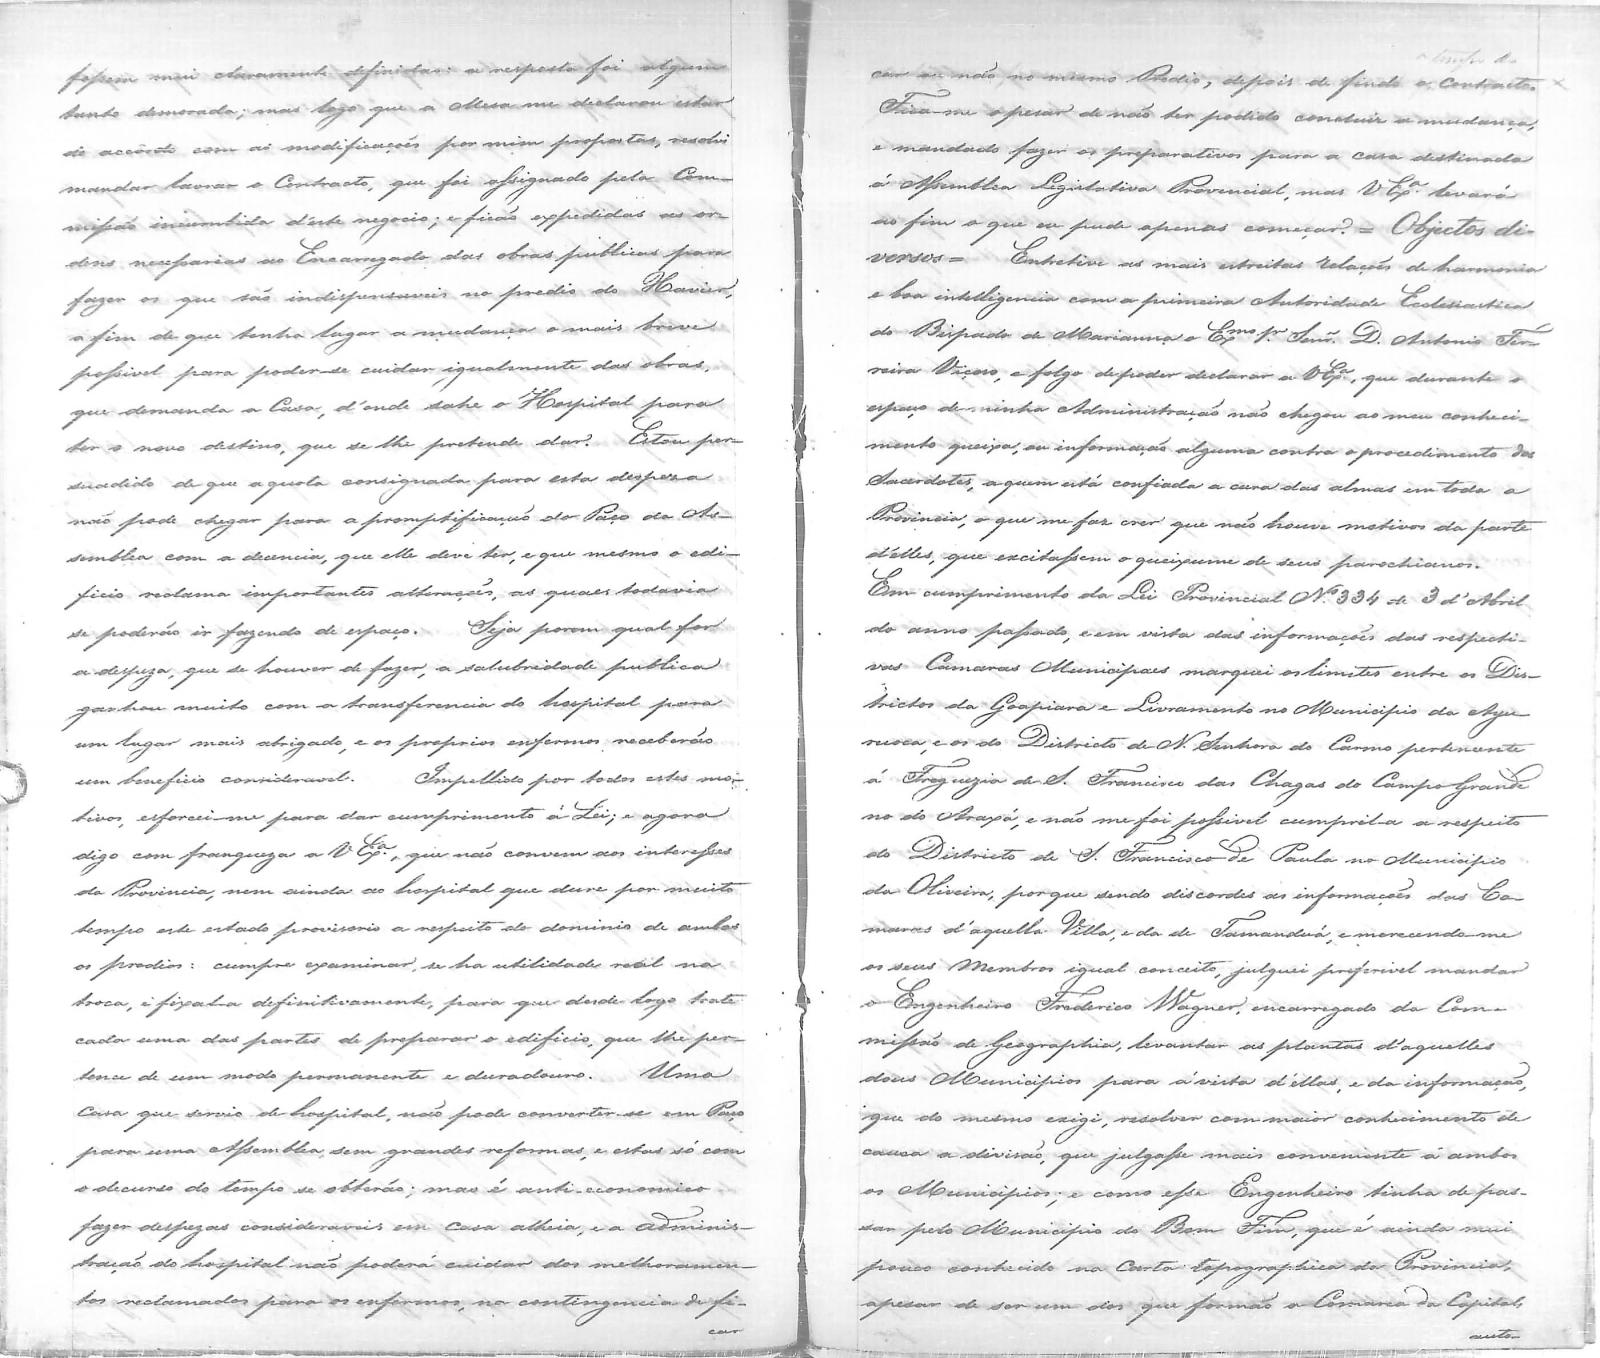 fossem mui claramente definidas: a resposta foi algum
tanto demorada; mas logo que a Mesa me declarou estar
de accôrdo com as modificações por mim propostas, resolvi
mandar lavrar o Contracto, que foi assignado pela Com-
missão incumbida d'este negocio; e ficão expedidas as or-
dens necessarias ao Encarregado das obras publicas para
fazer os que são indispensaveis no predio do Xavier,
a fim de que tenha lugar a mudança o mais breve
possivel para poder-se cuidar igualmente das obras,
que demanda a Casa, d'onde sahe o Hospital para
ter o novo destino, que se lhe pretende dar. Estou per-
suadido de que a quota consignada para esta despeza
não pode chegar para a promptificação do Paço da As-
semblea com a decencia, que elle deve ter, e que mesmo o edi-
ficio reclama importantes alterações, as quaes todavia
se poderão ir fazendo de espaço. Seja porem qual for
a despeza, que se houver de fazer, a salubridade publica
ganhou muito com a transferencia do hospital para
um lugar mais abrigado, e os proprios enfermos receberão
um beneficio consideravel. Impellido por todos estes mo-
tivos, esforcei-me para dar cumprimento á Lei; e agora
digo com franqueza a V Exª., que não convem aos interesses
da Provincia, nem ainda ao hospital que dure por muito
tempo este estado provisorio a respeito do dominio de ambos
os predios: cumpre examinar, se ha utilidade real na
troca, e fixal-a definitivamente, para que desde logo trate
cada uma das partes de preparar o edificio, que lhe per-
tence de um modo permanente e duradouro. Uma
casa que servio de hospital, não pode converter-se em Paço
para uma Assemblea, sem grandes reformas, e estas só com
o decurso do tempo se obterão; mas é anti-economico
fazer despezas consideraveis em casa alheia, e a adminis-
tração do hospital não poderá cuidar dos melhoramen-
tos reclamados para os enfermos, na contingencia de fi-
car
car ou não no mesmo Predio, depois de findo o Contracto.
Fica-me o pesar de não ter podido concluir a mudança,
e mandado fazer os preparativos para a casa destinada
á Assemblea Legislativa Provincial, mas V Exª. levará
ao fim o que eu pude apenas começar. = Objectos di-
versos = Entretive as mais estreitas relações de harmonia
e boa intelligencia com a primeira Autoridade Ecclesiastica
do Bispado de Marianna o Exmo. Senr. D. Antonio Fer-
reira Viçoso, e folgo de poder declarar a V Exª., que durante o
espaço de minha Administração não chegou ao meu conheci-
mento queixa, ou informação alguma contra o procedimento dos
Sacerdotes, a quem está confiada a cura das almas em toda a
Provincia, o que me faz crer que não houve motivos da parte
d'elles, que excitassem o queixume de seus parochianos.
Em cumprimento da Lei Provincial Nº 334 de 3 d'Abril
do anno passado, e em vista das informações das respecti-
vas Camaras Municipaes marquei os limites entre os Dis-
trictos da Goapiara e Livramento no Municipio da Ayu-
ruoca, e os do Districto de N. Senhora do Carmo pertencente
á Freguezia de S. Francisco das Chagas do Campo Grande
no do Araxá, e não me foi possivel cumpril-a a respeito
do Districto de S. Francisco de Paula no Municipio
da Oliveira, por que sendo discordes as informações das Ca-
maras d'aquella Villa, e da de Tamanduá, e merecendo-me
os seus Membros igual conceito, julguei preferivel mandar
o Engenheiro Frederico Wagner, encarregado da Com-
missão de Geographia, levantar as plantas d'aquelles
dous Municipios para á vista d'ellas, e da informação,
que do mesmo exigi, resolver com maior conhecimento de
causa a divisão, que julgasse mais conveniente á ambos
os Municipios; e como esse Engenheiro tinha de pas-
sar pelo Municipio do Bom Fim, que é ainda mui
pouco conhecido na Carta topographica da Provincia,
apesar de ser um dos que formão a Comarca da Capital,
auto-